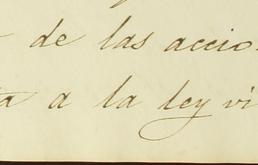 de las accio
ta a la ley vi